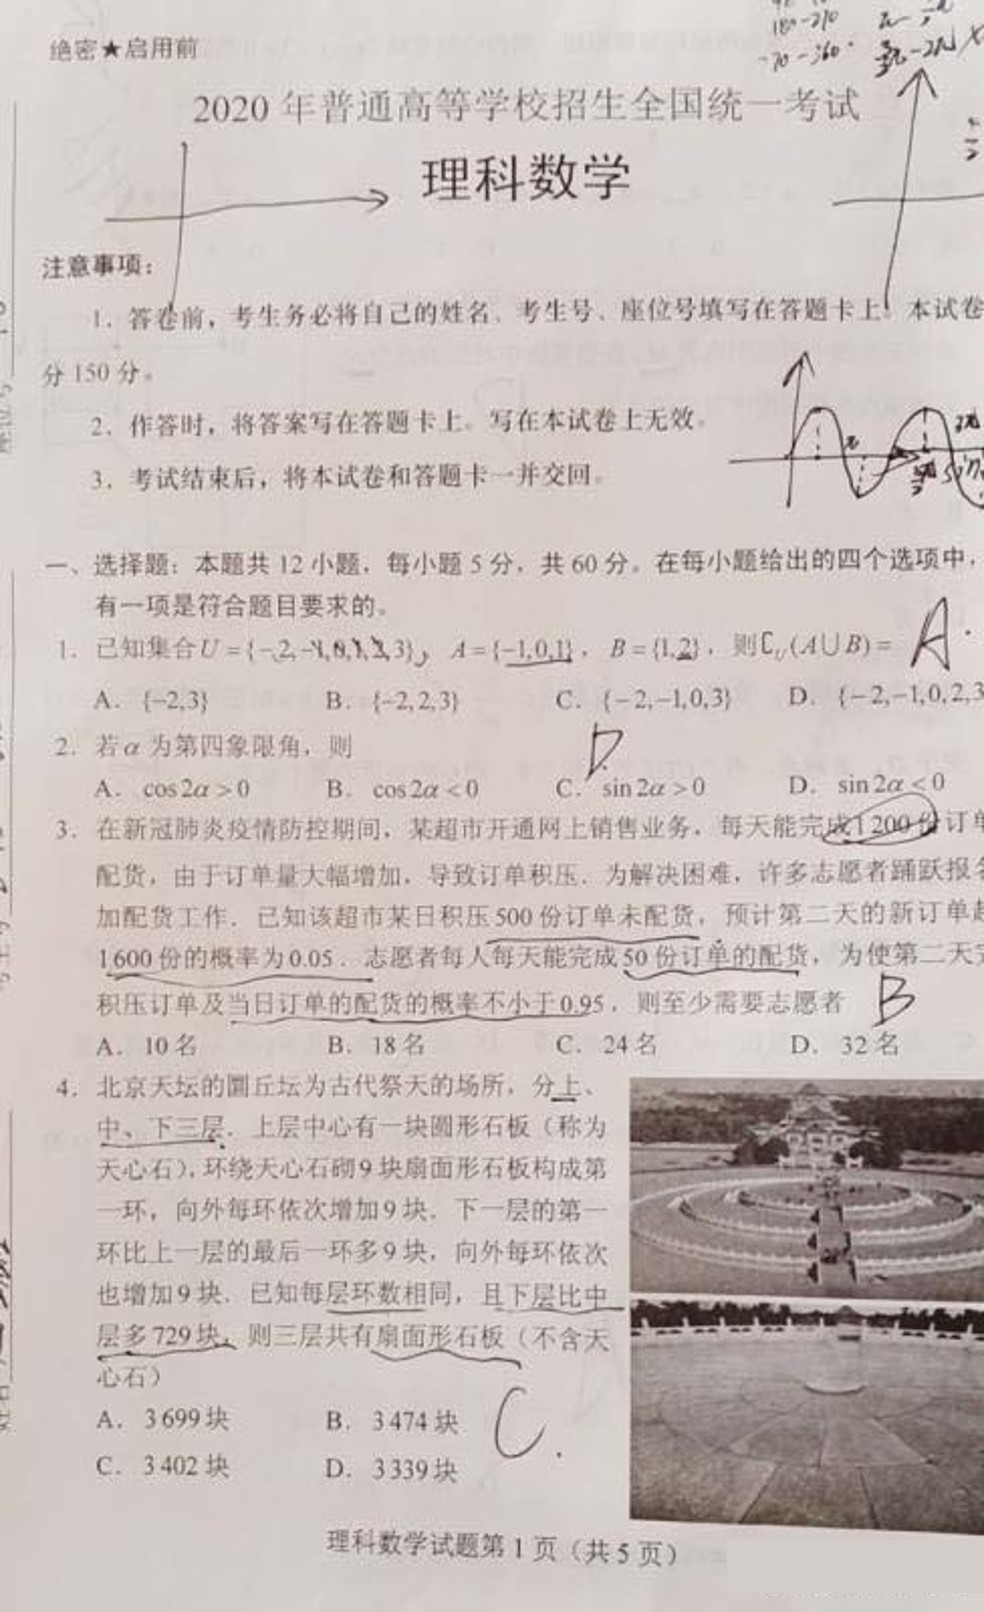 绝密★启用前
2020 年普通高等学校招生全国统一考试
理科数学
注意事项：
1．答卷前，考生务必将自己的姓名、考生号、座位号填写在答题卡上．本试卷
分 150 分。
2．作答时，将答案写在答题卡上。写在本试卷上无效。
3．考试结束后，将本试卷和答题卡一并交回。
一、选择题：本题共 12 小题，每小题 5 分，共 60 分。在每小题给出的四个选项中，
有一项是符合题目要求的。
1．已知集合 U={-2,-1,0,1,2,3}，A={-1,0,1}，B={1,2}，则∁U(A∪B)= A
A．{-2,3} B．{-2,2,3} C．{-2,-1,0,3} D．{-2,-1,0,2,3
2．若α为第四象限角，则 D
A．cos2α>0 B．cos2α<0 C．sin2α>0 D．sin2α<0
3．在新冠肺炎疫情防控期间，某超市开通网上销售业务，每天能完成1200份订单
配货，由于订单量大幅增加，导致订单积压．为解决困难，许多志愿者踊跃报名
加配货工作．已知该超市某日积压500份订单未配货，预计第二天的新订单超
1600份的概率为0.05．志愿者每人每天能完成50份订单的配货，为使第二天完
积压订单及当日订单的配货的概率不小于0.95，则至少需要志愿者 B
A．10名 B．18名 C．24名 D．32名
4．北京天坛的圜丘坛为古代祭天的场所，分上、
中、下三层．上层中心有一块圆形石板（称为
天心石），环绕天心石砌9块扇面形石板构成第
一环，向外每环依次增加9块．下一层的第一
环比上一层的最后一环多9块，向外每环依次
也增加9块．已知每层环数相同，且下层比中
层多729块，则三层共有扇面形石板（不含天
心石）
A．3699块 B．3474块 C
C．3402块 D．3339块
理科数学试题第 1 页（共 5 页）